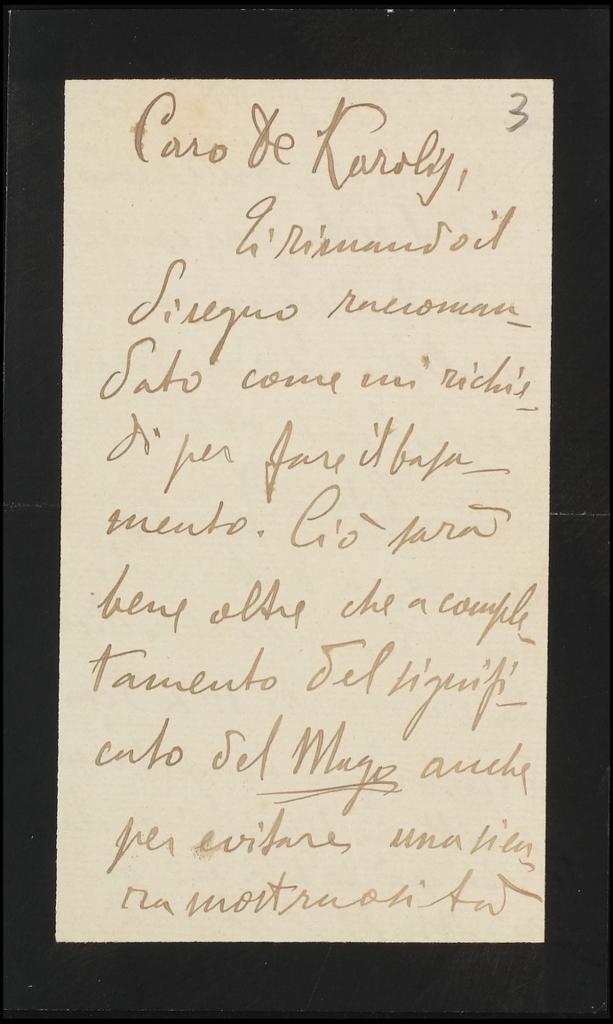 3
Caro De Karolis,
ti rimando il
disegno raccoman-
dato come mi richie-
di per fare il basa-
mento. Ciò sarà
bene oltre che a comple-
tamento del signifi-
cato del Mago anche
per evitare una sicu-
ra mostruosità